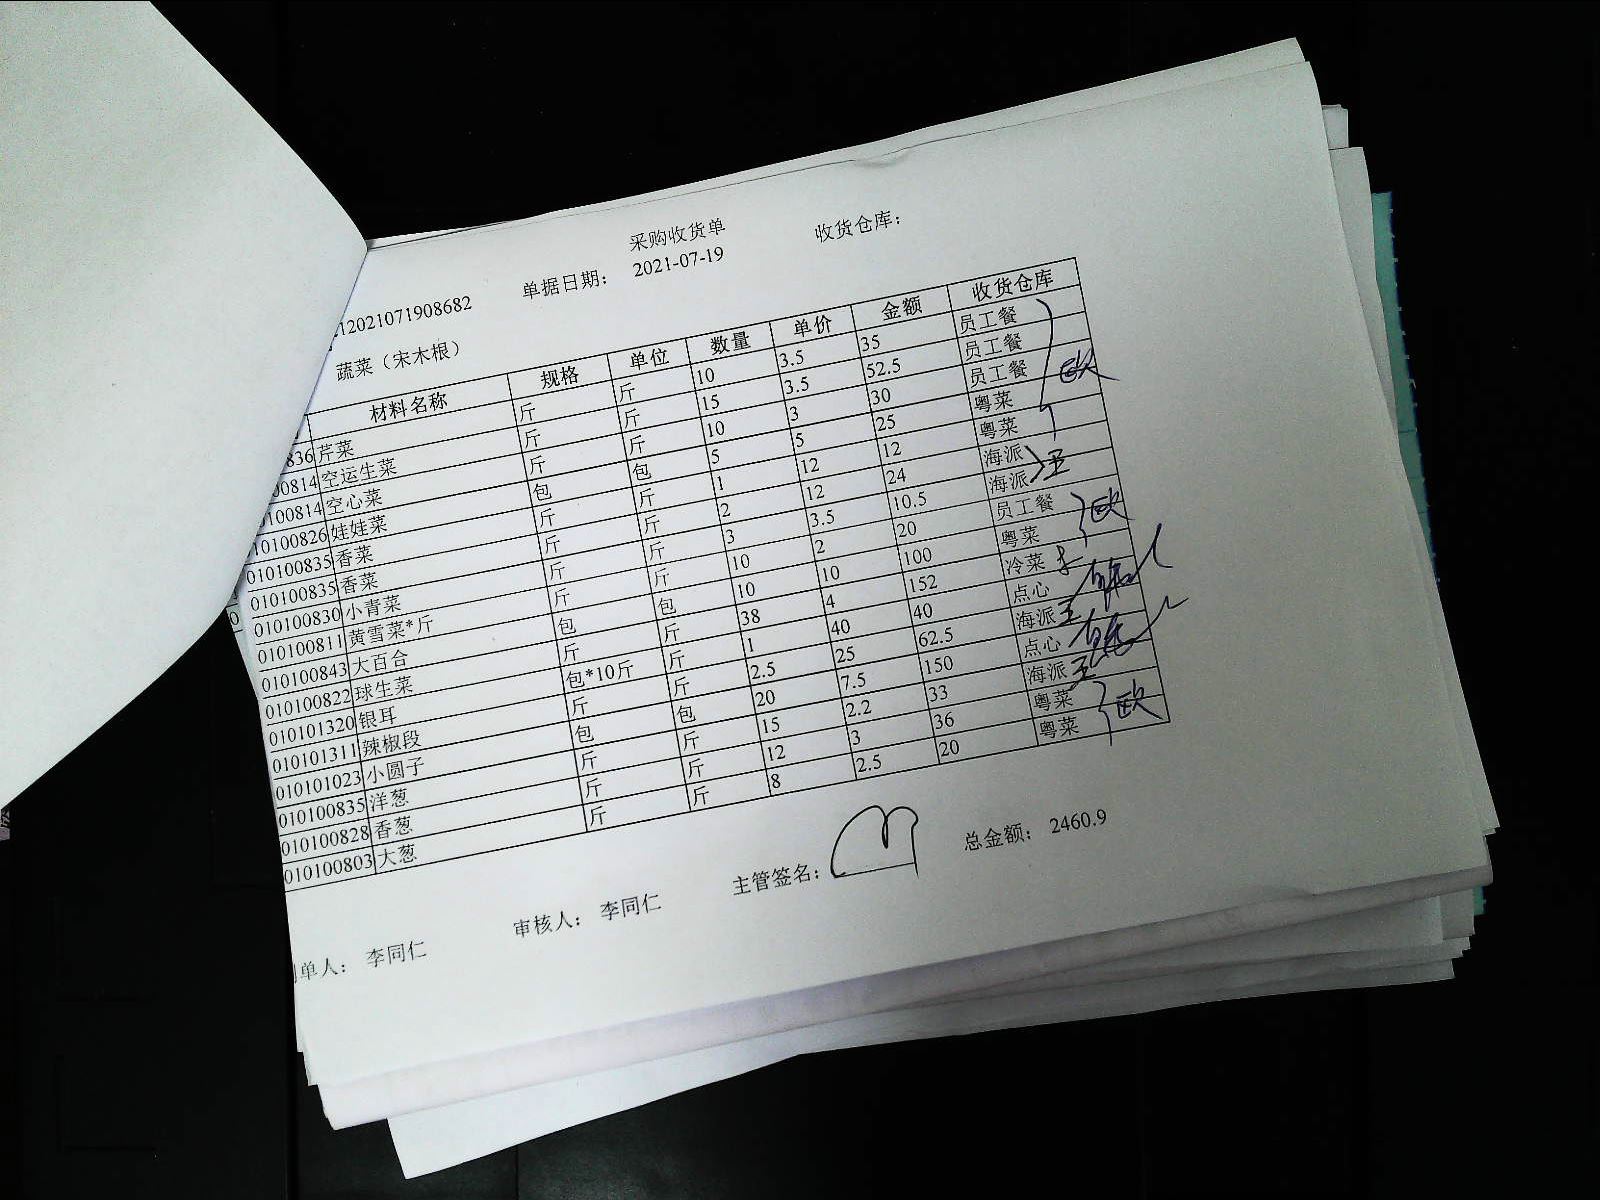 采购收货单
12021071908682 单据日期： 2021-07-19 收货仓库：
蔬菜（宋木根）
材料名称 规格 单位 数量 单价 金额 收货仓库
836 芹菜 斤 斤 10 3.5 35 员工餐
00814 空运生菜 斤 斤 15 3.5 52.5 员工餐
0100814 空心菜 斤 斤 10 3 30 员工餐 欧
10100826 娃娃菜 包 包 5 5 25 粤菜
010100835 香菜 斤 斤 1 12 12 粤菜
010100835 香菜 斤 斤 2 12 24 海派 王
010100830 小青菜 斤 斤 3 3.5 10.5 海派
010100811 黄雪菜*斤 斤 斤 10 2 20 员工餐 欧
010100843 大百合 包 包 10 10 100 粤菜
010100822 球生菜 斤 斤 38 4 152 冷菜
010101320 银耳 包*10斤 斤 1 40 40 点心
010101311 辣椒段 斤 斤 2.5 25 62.5 海派 王
010101023 小圆子 包 包 20 7.5 150 点心
010100835 洋葱 斤 斤 15 2.2 33 海派 王
010100828 香葱 斤 斤 12 3 36 粤菜 欧
010100803 大葱 斤 斤 8 2.5 20 粤菜
单人： 李同仁 审核人： 李同仁 主管签名： 总金额： 2460.9